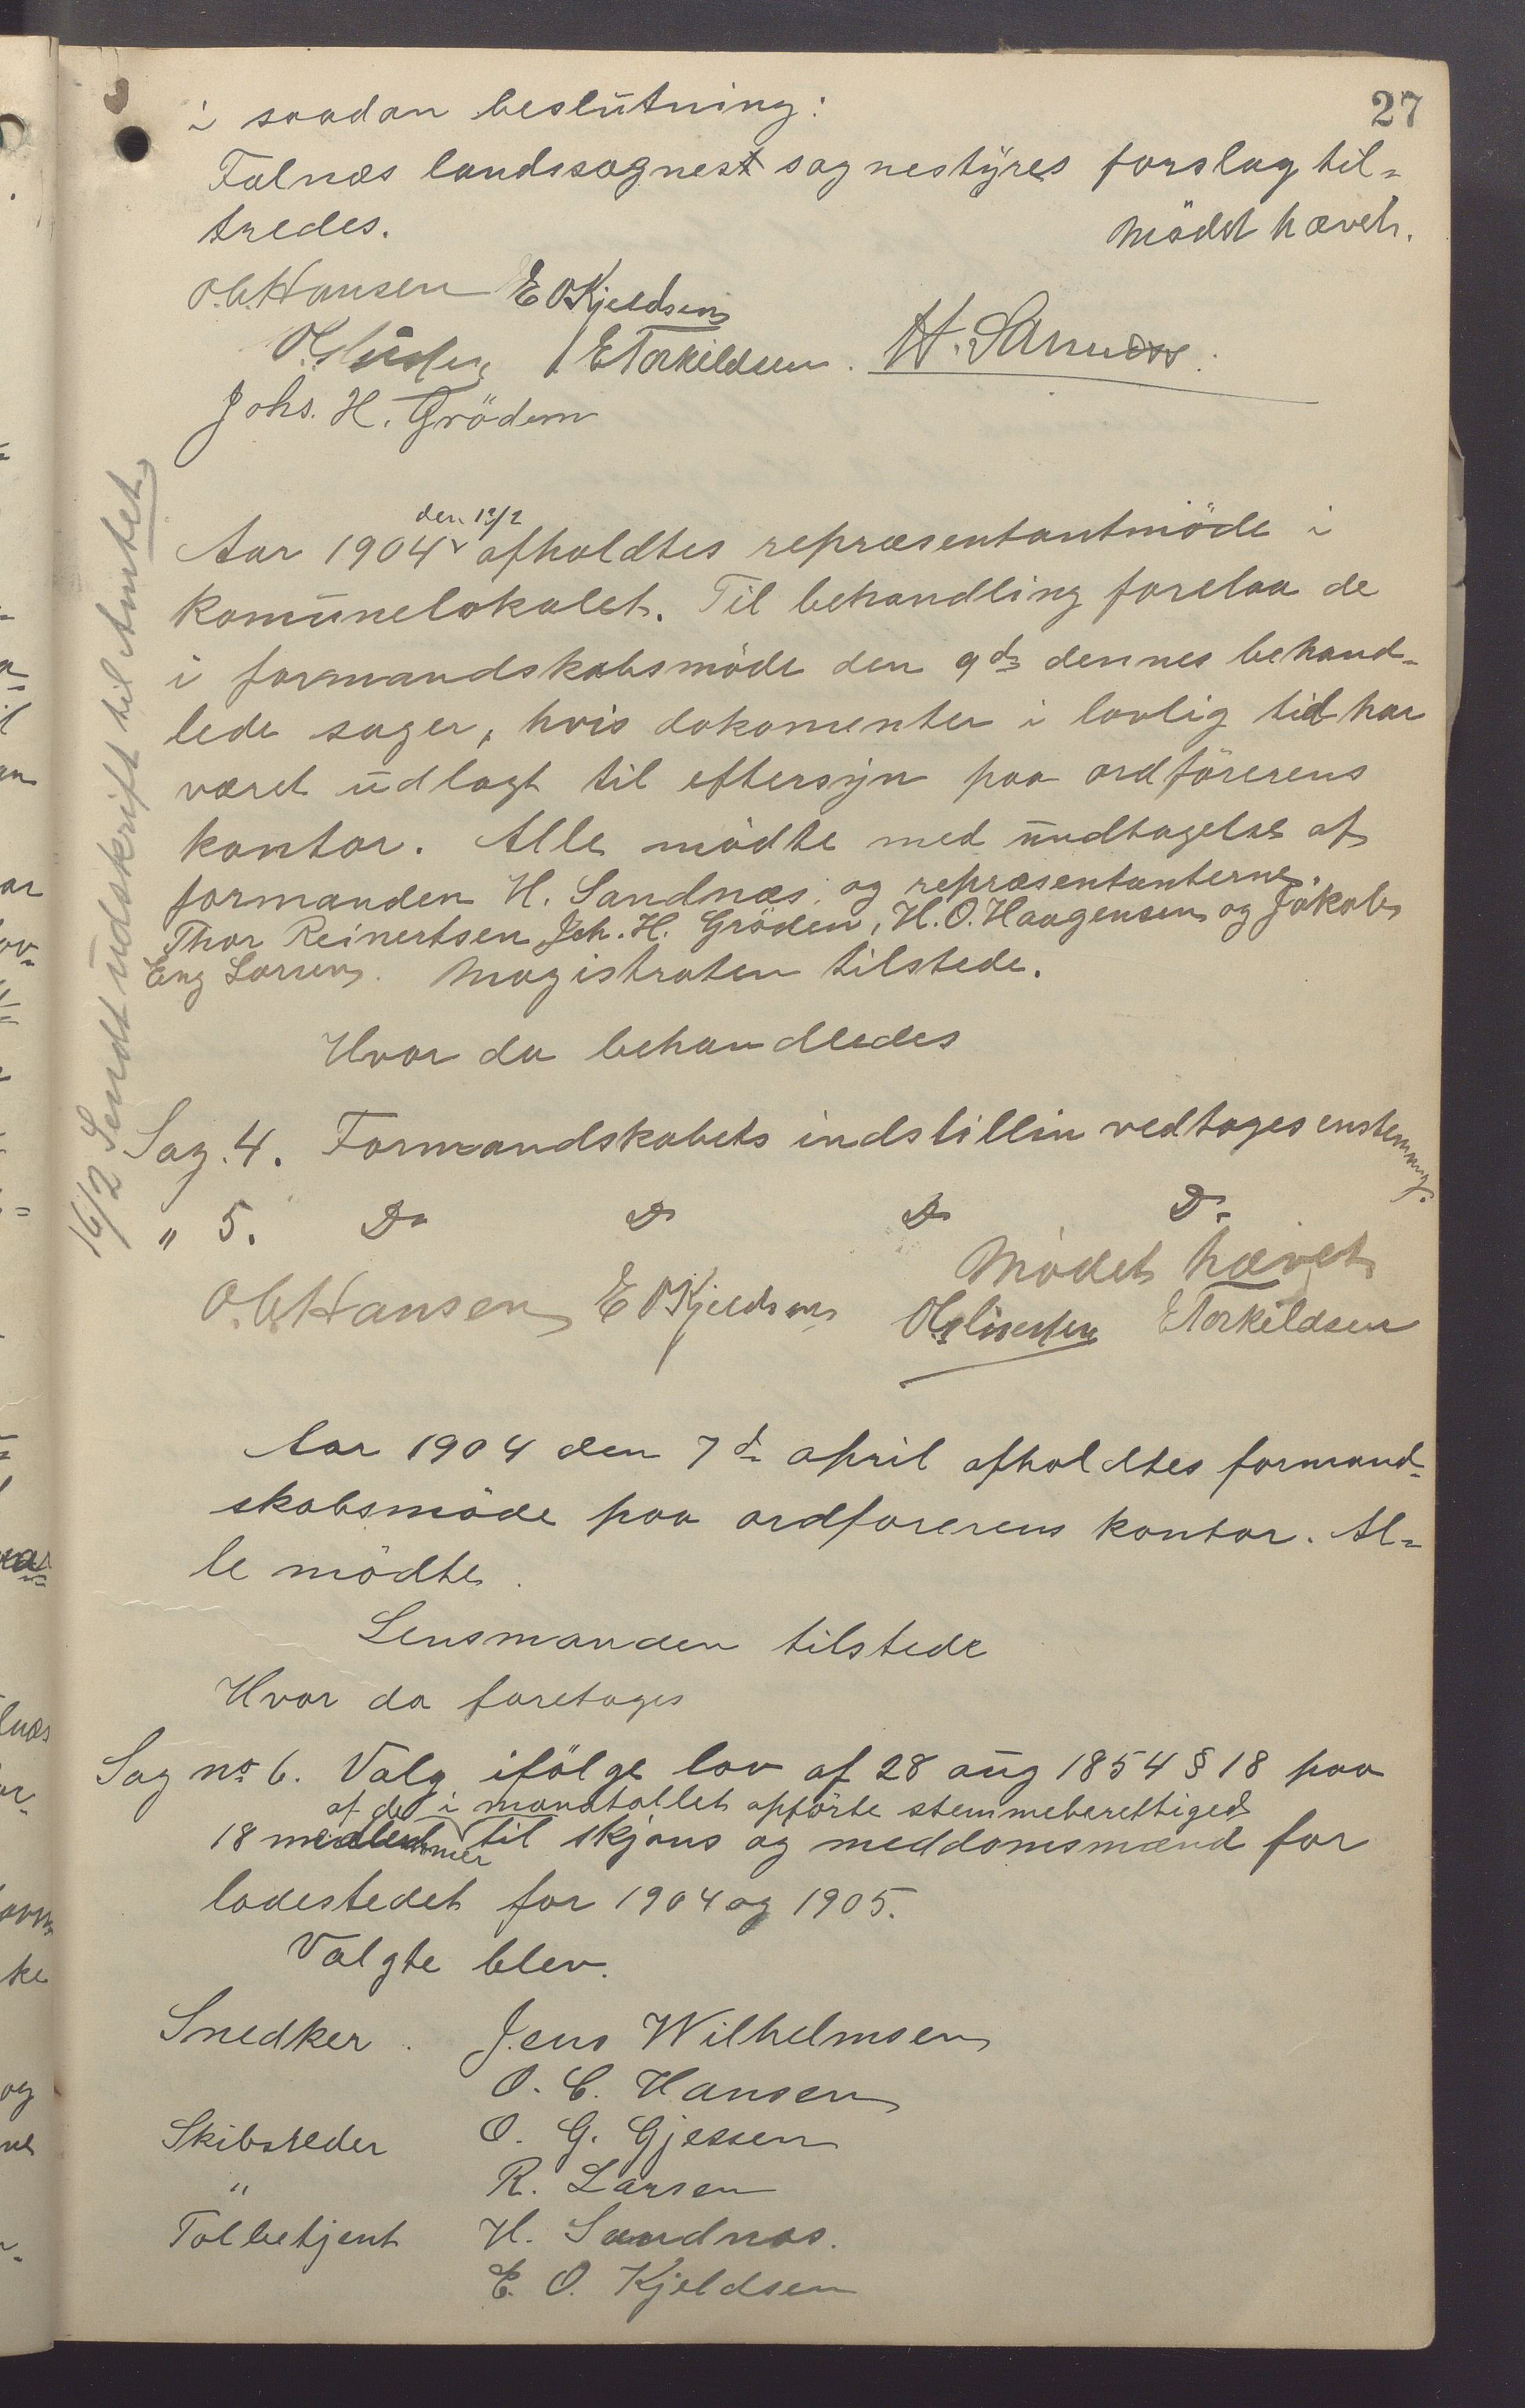 27
i saadan beslutning:
Falnæs landssognest sognestyres forslag til-
tredes. Mödet hævet.
O.C. Hansen E O Kjeldsen
E Torkildsen
Johs. H. Gröden
Aar 1904 den 12/2 afholdtes repræsentantmöde i
komunelokalet. Til behandling forelaa de
i formandskabsmöde den 9de dennes behand-
lede sager, hvis dokomenter i lovlig tid har
været udlagt til eftersyn paa ordförerens
kontor. Alle mödte med undtagelse af
formanden H. Sandnæs. og repræsentanterne.
Thor Reinertsen Joh. H. Gröden, H.O. Haagensen og Jakob
Eng Larsen. Magistraten tilstede.
Hvor da behandledes
Sag. 4. Formandskabets indstillin vedtages enstemmig.
" 5. Do Do Do Do
Mödet hævet
O.C. Hansen E O Kjeldsen E Torkildsen
16/2 Sendt udskrift til Amtet
Aar 1904 den 7de april afholdtes formand-
skabsmöde paa ordforerens kontor. Al-
le mödte.
Lensmanden tilstede
Hvor da foretages
Sag no 6. Valg ifölge lov af 28 aug 1854 § 18 paa
af de i manntallet opförte stemmeberettiged
18 medlemmer til skjöns og meddomsmænd for
ladestedet for 1904 og 1905.
Valgte blev.
Snedker. Jens Wilhelmsen
O. C. Hansen
Skibsreder O. G. Gjessen
" R. Larsen
Tolbetjent H. Sandnæs.
E. O. Kjeldsen